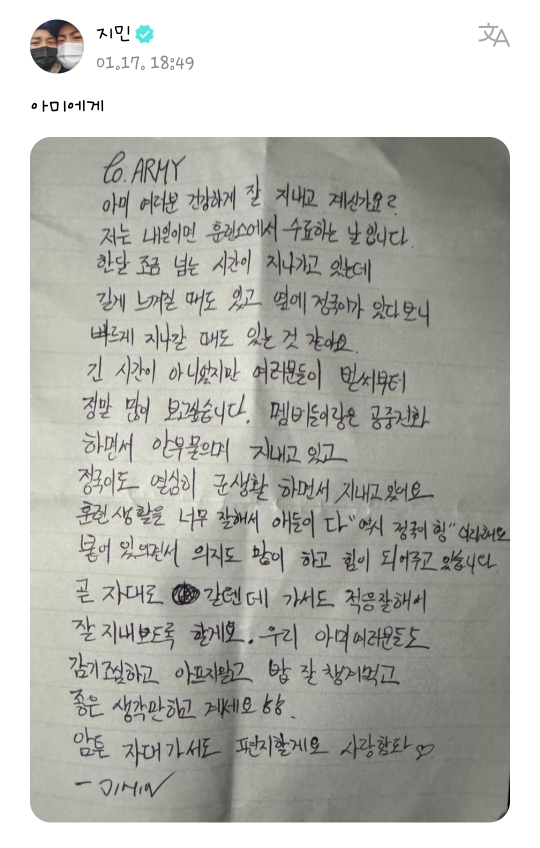 지민
01.17. 18:49
아미에게
to. ARMY
아미 여러분 건강하게 잘 지내고 계신가요?
저는 내일이면 훈련소에서 수료하는 날 입니다.
한달 조금 넘는 시간이 지나가고 있는데
길게 느껴질 때도 있고 옆에 정국이가 있다보니
빠르게 지나갈 때도 있는 것 같아요.
긴 시간이 아니었지만 여러분들이 벌써부터
정말 많이 보고싶습니다. 멤버들이랑은 공중전화
하면서 안부물으며 지내고 있고
정국이도 열심히 군생활 하면서 지내고있어요
훈련 생활을 너무 잘해서 애들이 다 "역시 정국이 형" 이래해요
붙어 있으면서 의지도 많이 하고 힘이 되어주고 있습니다.
곧 자대로 갈텐데 가서도 적응잘해서
잘 지내보도록 할게요. 우리 아미여러분들도
감기조심하고 아프지말고 밥 잘 챙겨먹고
좋은 생각만하고 계세요 ㅎㅎ.
암튼 자대가서도 편지할게요 사랑합니다 ♡
- JIMIN